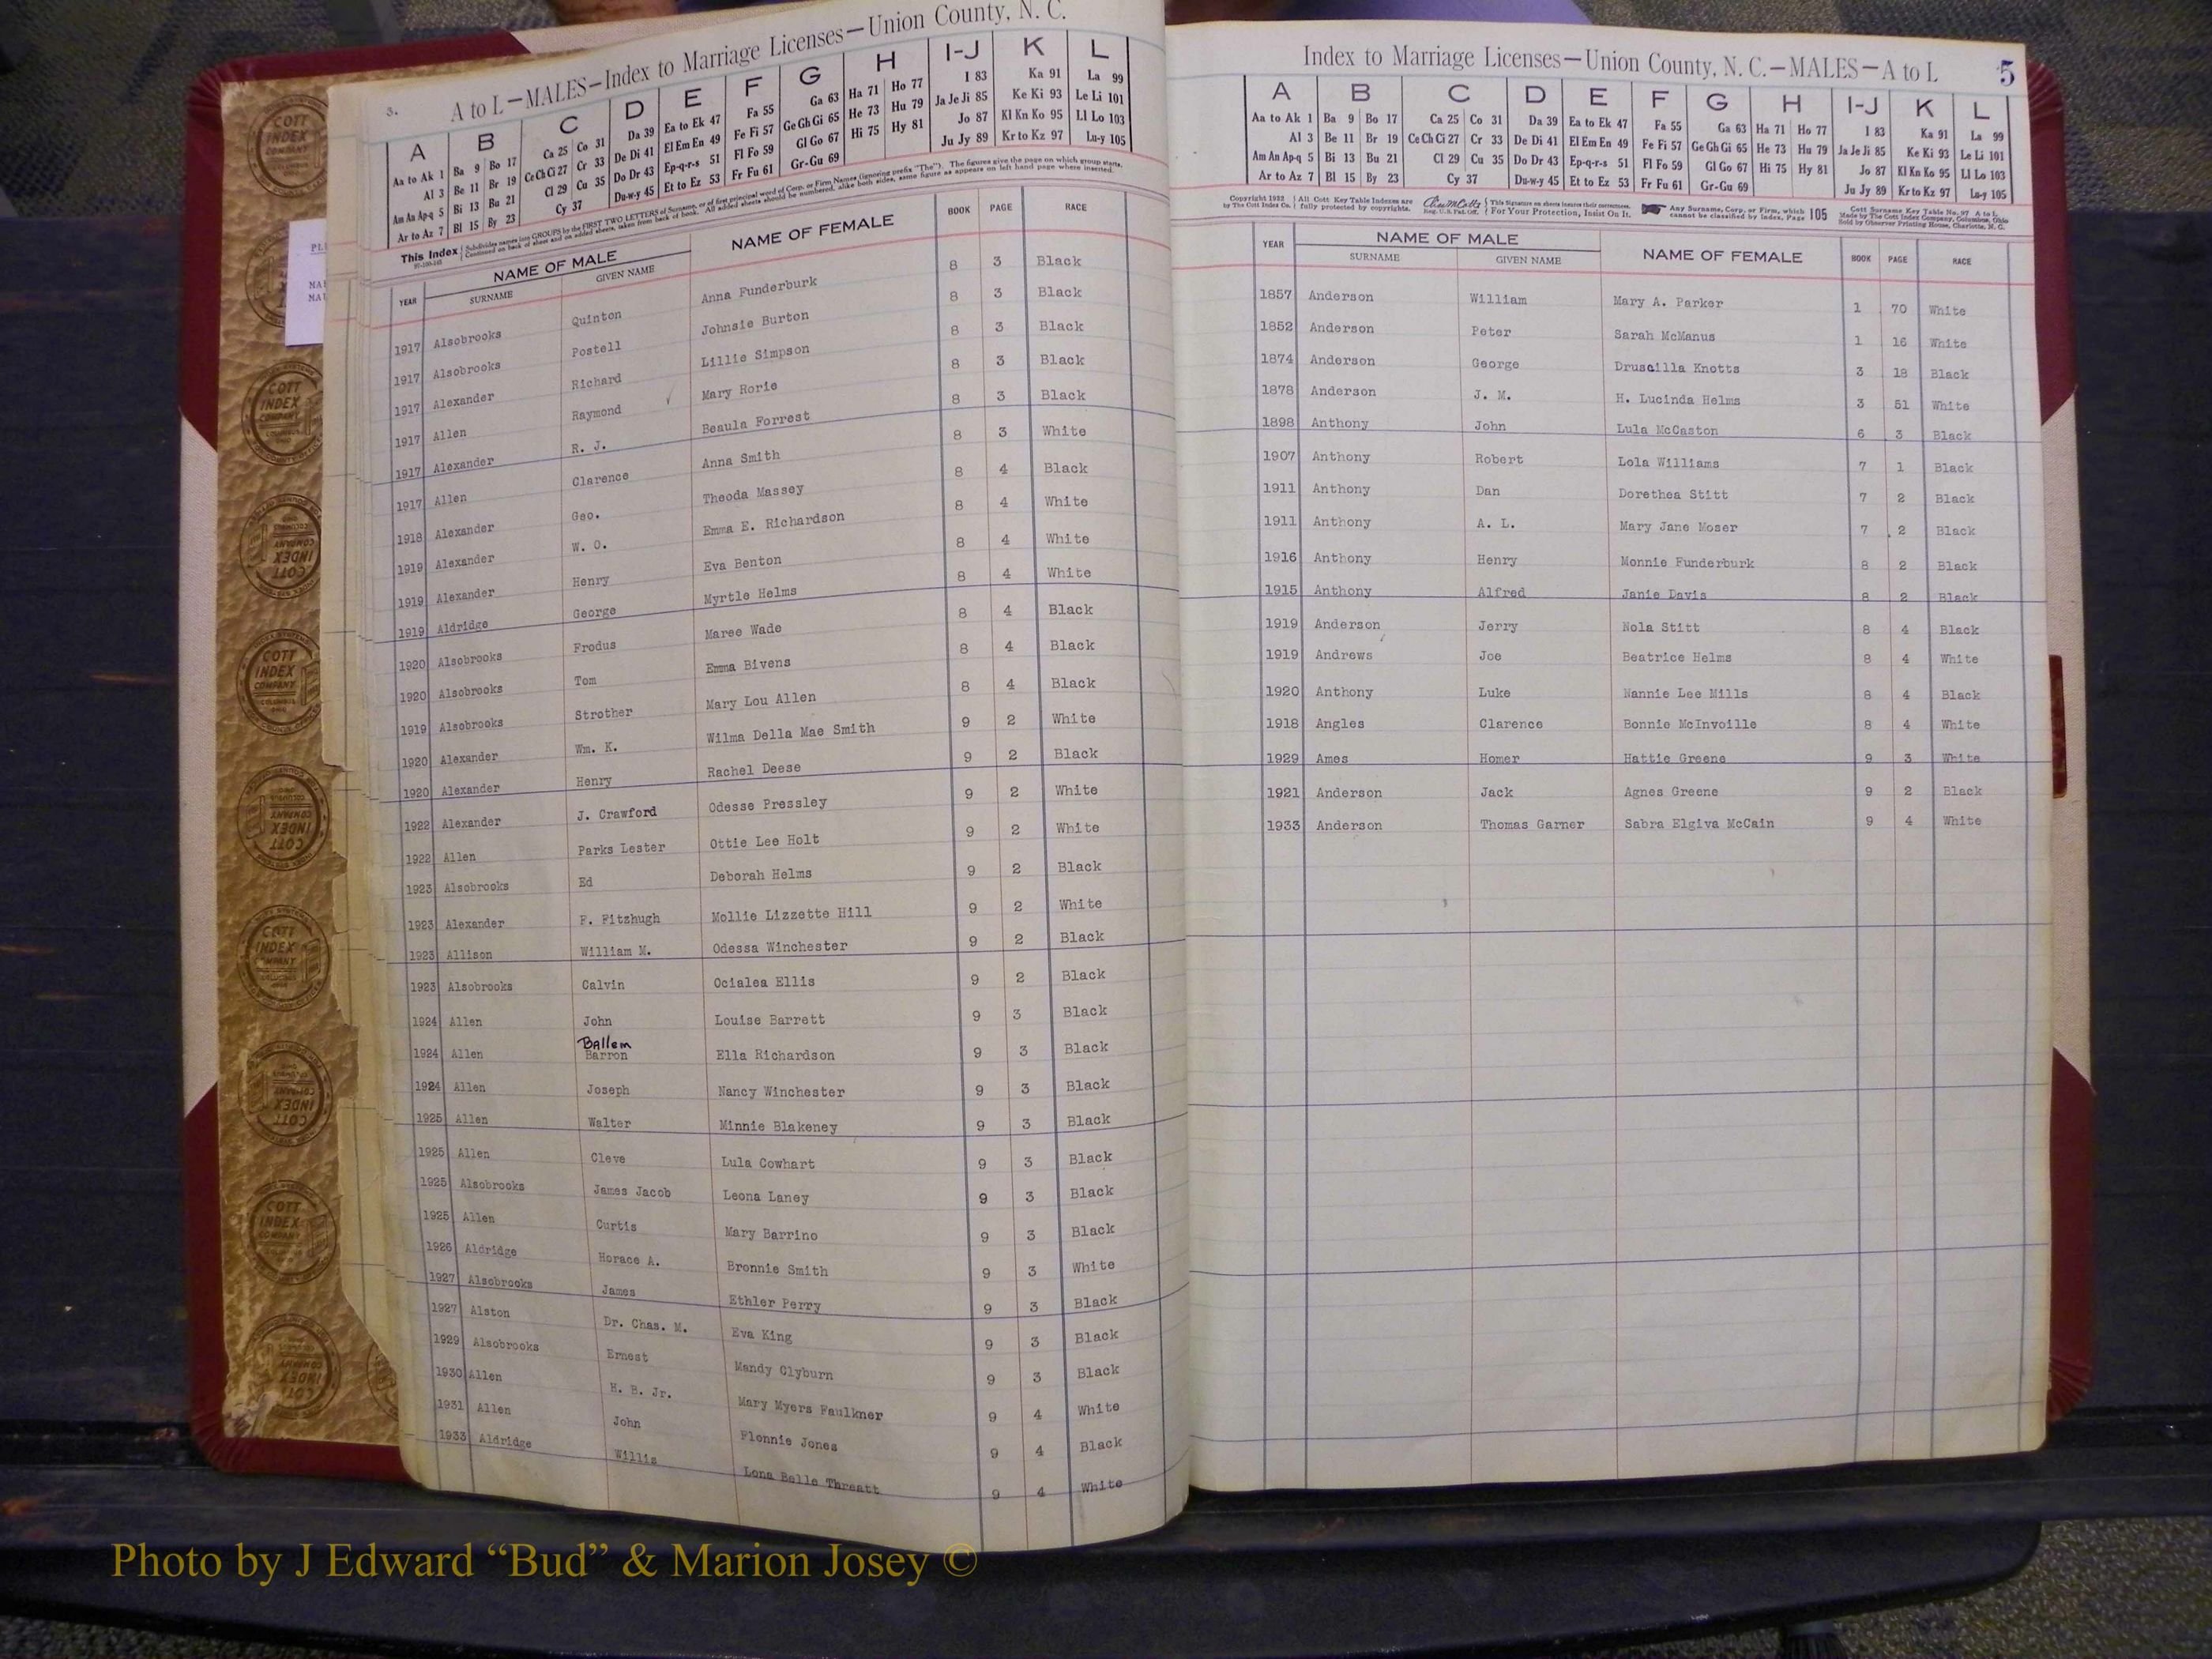 3. A to L—MALES—Index to Marriage Licenses—Union County, N. C.
A B C D E F G H I-J K L
Aa to Ak 1 Ba 9 Bo 17 Ca 25 Co 31 Da 39 Ea to Ek 47 Fa 55 Ga 63 Ha 71 Ho 77 I 83 Ka 91 La 99
Al 3 Be 11 Br 19 Ce Ch Ci 27 Cr 33 De Di 41 El Em En 49 Fe Fi 57 Ge Gh Gi 65 He 73 Hu 79 Ja Je Ji 85 Ke Ki 93 Le Li 101
Am An Ap-q 5 Bi 13 Bu 21 Cl 29 Cu 35 Do Dr 43 Ep-q-r-s 51 Fl Fo 59 Gl Go 67 Hi 75 Hy 81 Jo 87 Kl Kn Ko 95 Ll Lo 103
Ar to Az 7 Bl 15 By 23 Cy 37 Du-w-y 45 Et to Ez 53 Fr Fu 61 Gr-Gu 69 Ju Jy 89 Kr to Kz 97 Lu-y 105
This Index Subdivides names into GROUPS by the FIRST TWO LETTERS of Surname, or of first principal word of Corp. or Firm Names (ignoring prefix "The"). The figures give the page on which group starts.
Continued on back of sheet and on added sheets, taken from back of book. All added sheets should be numbered, alike both sides, same figure as appears on left hand page where inserted.
YEAR NAME OF MALE NAME OF FEMALE BOOK PAGE RACE
SURNAME GIVEN NAME
1917 Alsobrooks Quinton Anna Funderburk 8 3 Black
1917 Alsobrooks Postell Johnsie Burton 8 3 Black
1917 Alexander Richard Lillie Simpson 8 3 Black
1917 Allen Raymond Mary Rorie 8 3 Black
1917 Alexander R. J. Beaula Forrest 8 3 Black
1917 Allen Clarence Anna Smith 8 3 White
1918 Alexander Geo. Theoda Massey 8 4 Black
1919 Alexander W. O. Emma E. Richardson 8 4 White
1919 Alexander Henry Eva Benton 8 4 White
1919 Aldridge George Myrtle Helms 8 4 White
1920 Alsobrooks Frodus Maree Wade 8 4 Black
1920 Alsobrooks Tom Emma Bivens 8 4 Black
1919 Alsobrooks Strother Mary Lou Allen 8 4 Black
1920 Alexander Wm. K. Wilma Della Mae Smith 9 2 White
1920 Alexander Henry Rachel Deese 9 2 Black
1922 Alexander J. Crawford Odesse Pressley 9 2 White
1922 Allen Parks Lester Ottie Lee Holt 9 2 White
1923 Alsobrooks Ed Deborah Helms 9 2 Black
1923 Alexander F. Fitzhugh Mollie Lizzette Hill 9 2 White
1923 Allison William M. Odessa Winchester 9 2 Black
1923 Alsobrooks Calvin Ocialea Ellis 9 2 Black
1924 Allen John Louise Barrett 9 3 Black
Ballem
1924 Allen Barron Ella Richardson 9 3 Black
1924 Allen Joseph Nancy Winchester 9 3 Black
1925 Allen Walter Minnie Blakeney 9 3 Black
1925 Allen Cleve Lula Cowhart 9 3 Black
1925 Alsobrooks James Jacob Leona Laney 9 3 Black
1925 Allen Curtis Mary Barrino 9 3 Black
1926 Aldridge Horace A. Bronnie Smith 9 3 White
1927 Alsobrooks James Ethler Perry 9 3 Black
1927 Alston Dr. Chas. M. Eva King 9 3 Black
1929 Alsobrooks Ernest Mandy Clyburn 9 3 Black
1930 Allen H. B. Jr. Mary Myers Faulkner 9 4 White
1931 Allen John Flonnie Jones 9 4 Black
1933 Aldridge Willis Lona Belle Threatt 9 4 White
Index to Marriage Licenses—Union County, N. C.—MALES—A to L 5
A B C D E F G H I-J K L
Aa to Ak 1 Ba 9 Bo 17 Ca 25 Co 31 Da 39 Ea to Ek 47 Fa 55 Ga 63 Ha 71 Ho 77 I 83 Ka 91 La 99
Al 3 Be 11 Br 19 Ce Ch Ci 27 Cr 33 De Di 41 El Em En 49 Fe Fi 57 Ge Gh Gi 65 He 73 Hu 79 Ja Je Ji 85 Ke Ki 93 Le Li 101
Am An Ap-q 5 Bi 13 Bu 21 Cl 29 Cu 35 Do Dr 43 Ep-q-r-s 51 Fl Fo 59 Gl Go 67 Hi 75 Hy 81 Jo 87 Kl Kn Ko 95 Ll Lo 103
Ar to Az 7 Bl 15 By 23 Cy 37 Du-w-y 45 Et to Ez 53 Fr Fu 61 Gr-Gu 69 Ju Jy 89 Kr to Kz 97 Lu-y 105
Copyright 1922 by The Cott Index Co. All Cott Key Table Indexes are fully protected by copyrights. Reg. U.S. Pat. Off. This Signature on sheets insures their correctness. For Your Protection, Insist On It. Any Surname, Corp. or Firm, which cannot be classified by Index, Page 105 Cott Surname Key Table No. 97 A to L Made by The Cott Index Company, Columbus, Ohio Sold by Observer Printing House, Charlotte, N. C.
YEAR NAME OF MALE NAME OF FEMALE BOOK PAGE RACE
SURNAME GIVEN NAME
1857 Anderson William Mary A. Parker 1 70 White
1852 Anderson Peter Sarah McManus 1 16 White
1874 Anderson George Druscilla Knotts 3 18 Black
1878 Anderson J. M. H. Lucinda Helms 3 51 White
1898 Anthony John Lula McCaston 6 3 Black
1907 Anthony Robert Lola Williams 7 1 Black
1911 Anthony Dan Dorethea Stitt 7 2 Black
1911 Anthony A. L. Mary Jane Moser 7 2 Black
1916 Anthony Henry Monnie Funderburk 8 2 Black
1915 Anthony Alfred Janie Davis 8 2 Black
1919 Anderson Jerry Nola Stitt 8 4 Black
1919 Andrews Joe Beatrice Helms 8 4 White
1920 Anthony Luke Nannie Lee Mills 8 4 Black
1918 Angles Clarence Bonnie McInvoille 8 4 White
1929 Ames Homer Hattie Greene 9 3 White
1921 Anderson Jack Agnes Greene 9 2 Black
1933 Anderson Thomas Garner Sabra Elgiva McCain 9 4 White
COTT INDEX COMPANY
Photo by J Edward “Bud” & Marion Josey ©